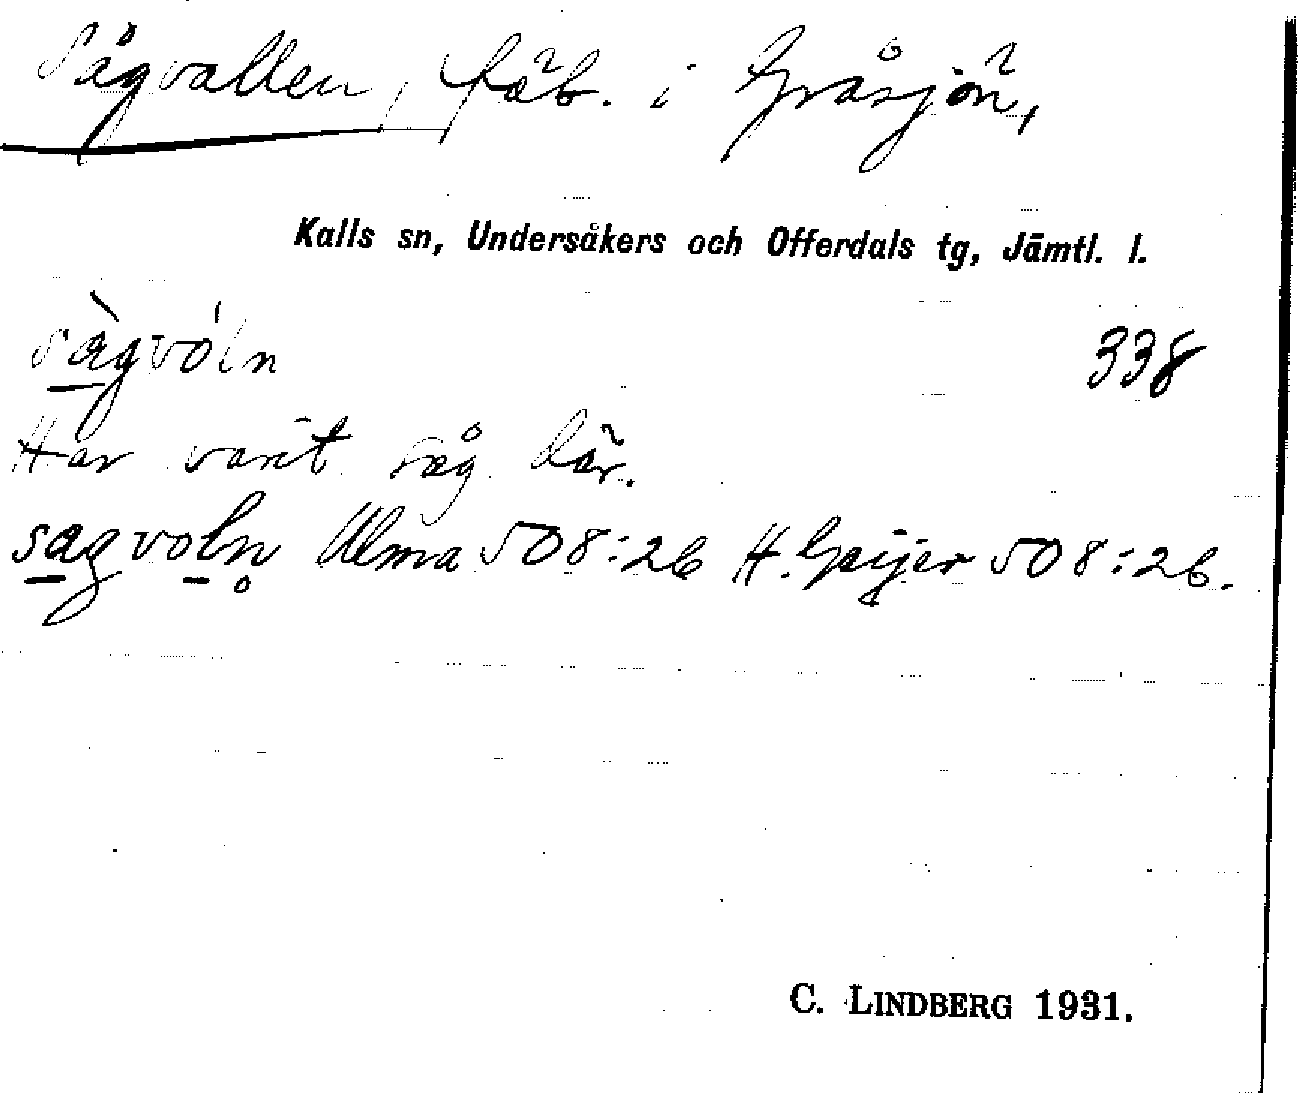 Sågvallen, fäb. i Gråsjön,
Kalls sn, Undersåkers och Offerdals tg, Jämtl. l.
sàgvóln
338
Har varit såg där.
sagvoln Ulma 508:26 H. Geijer 508:26.
C. LINDBERG 1931.